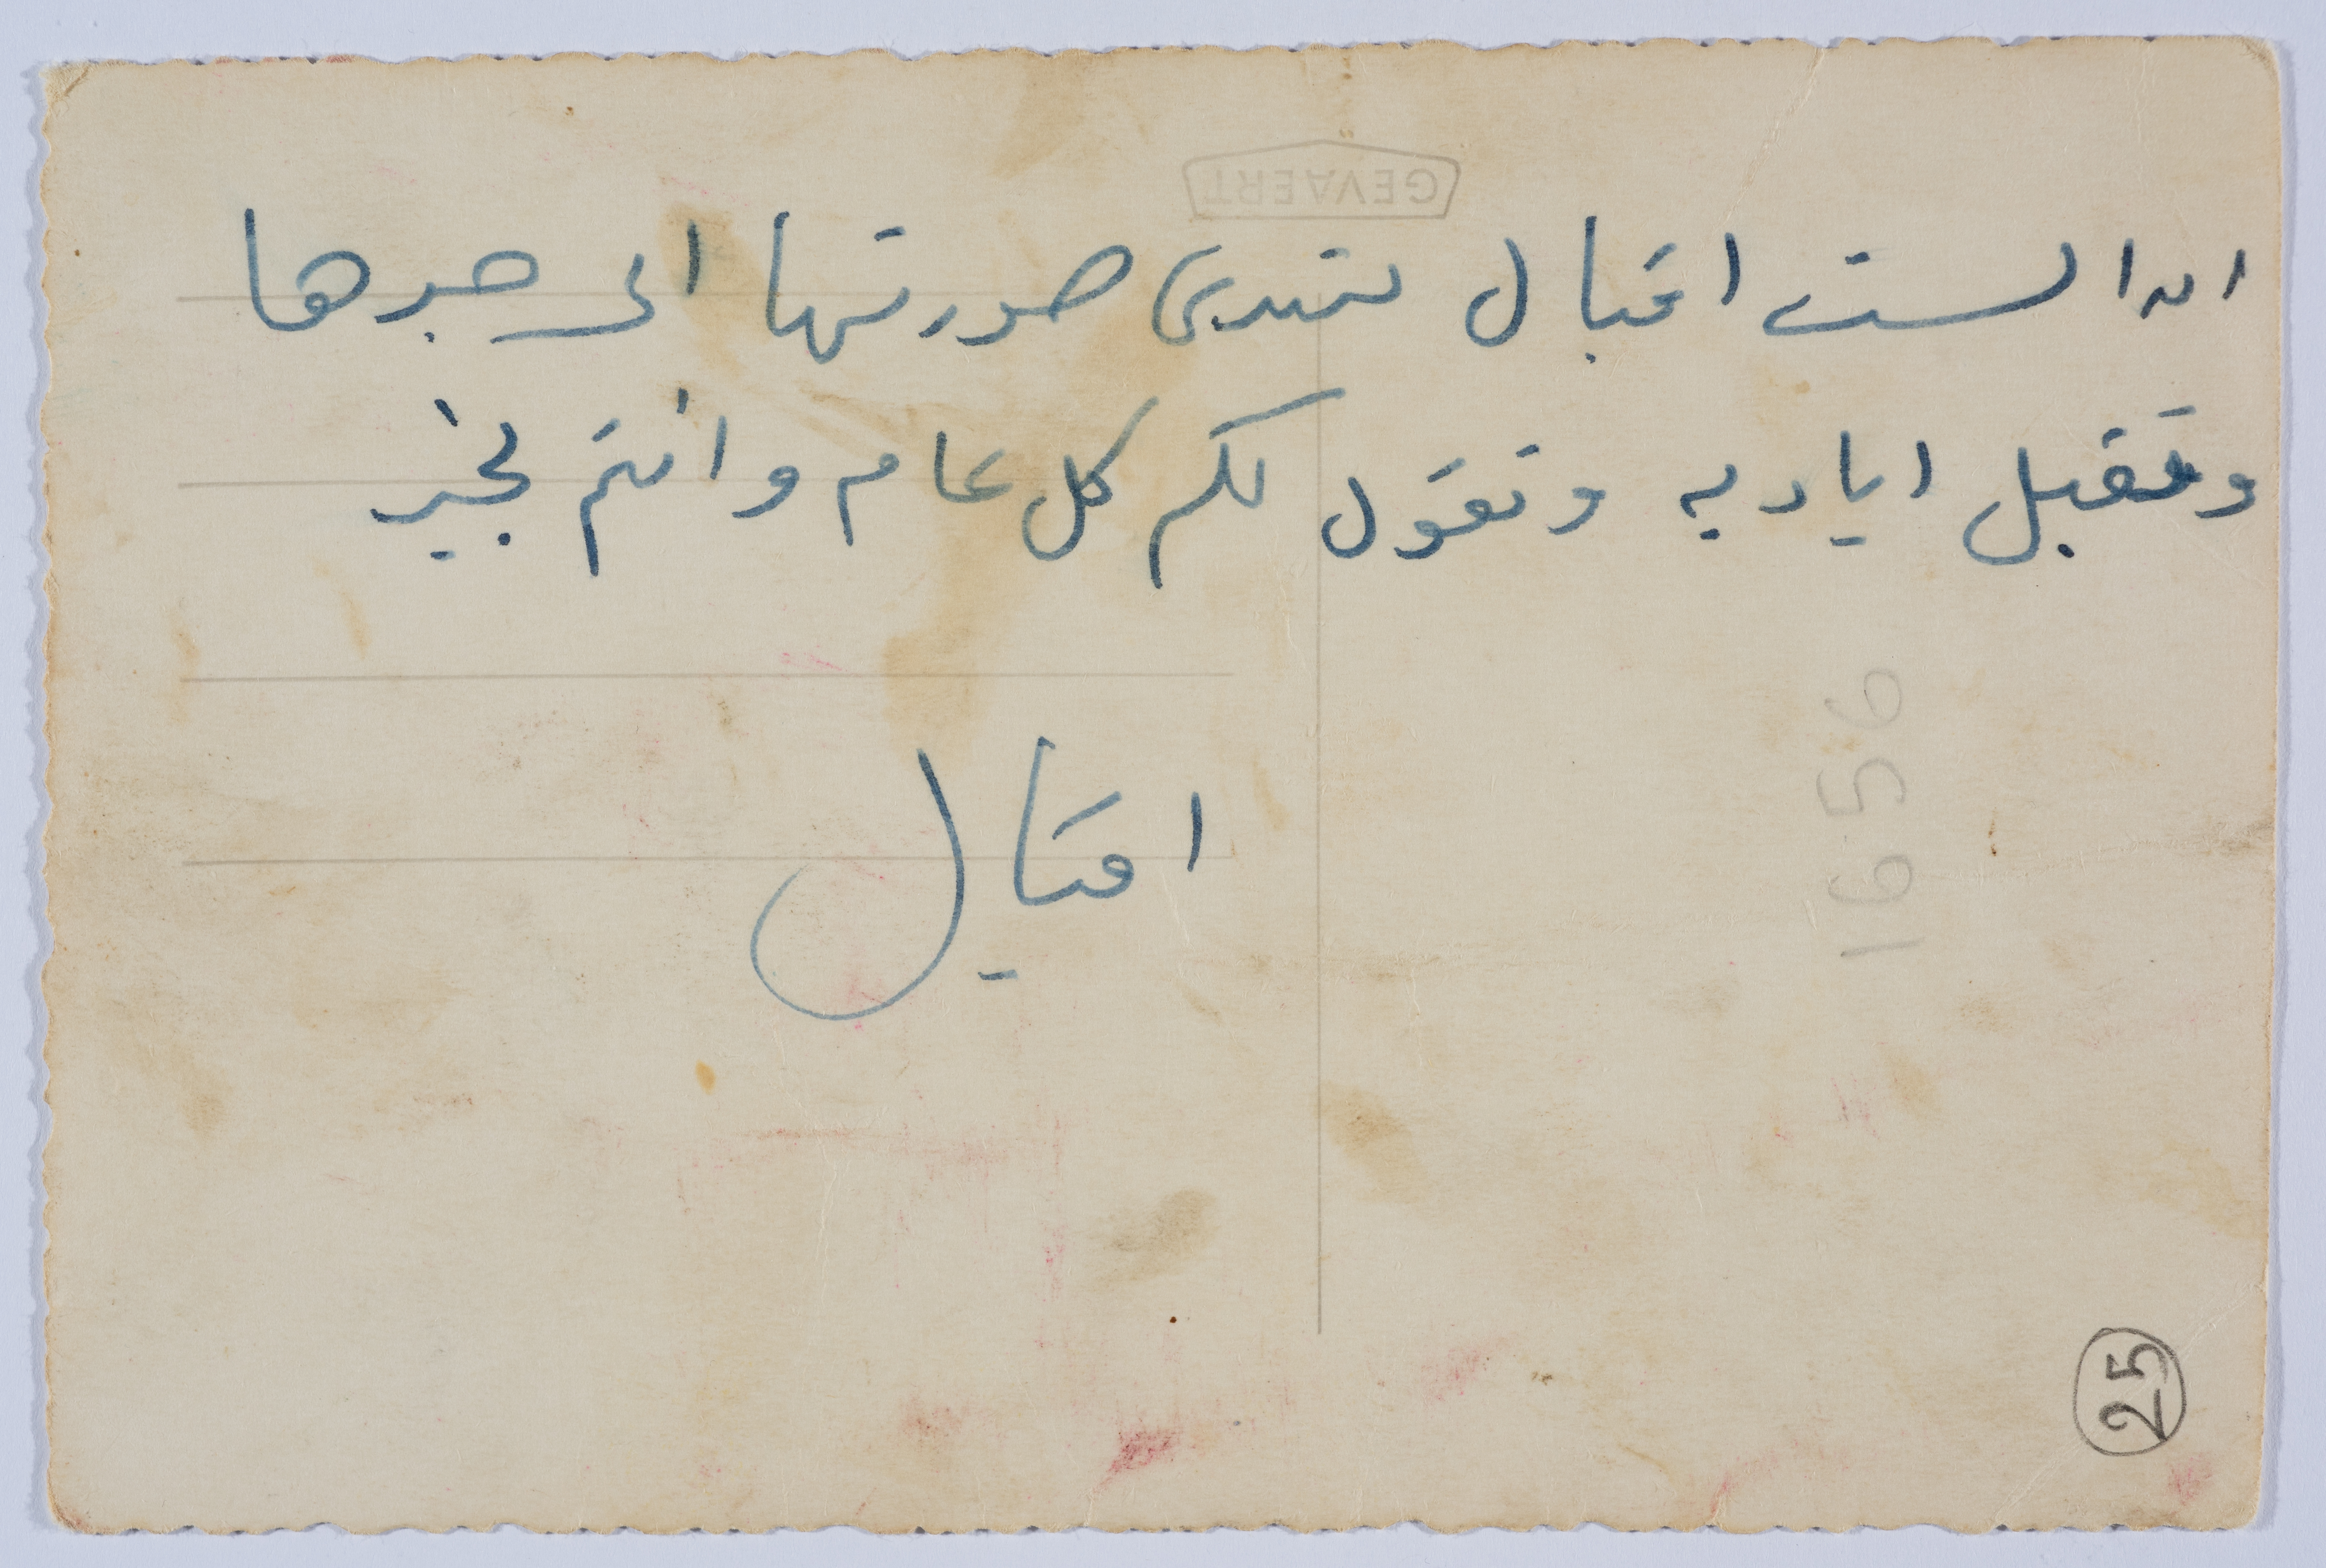 GEVAERT
ان الست اقبال تهدى صورتها الى جدها
وتقبل اياديه وتقول لكم كل عام وانتم بخير
اقبال
1656
25